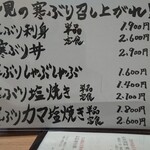 見の寒ぶり召し上がれ!
ぶり刺身 単品 1.900円
定食 2.600〃
寒ぶり丼 2.900〃
ぶりしゃぶしゃぶ 1.600〃
ぶり塩焼き 単品 1.400〃
定食 2.100〃
ぶりカマ塩焼き 単品 1.900〃
定食 2.600〃